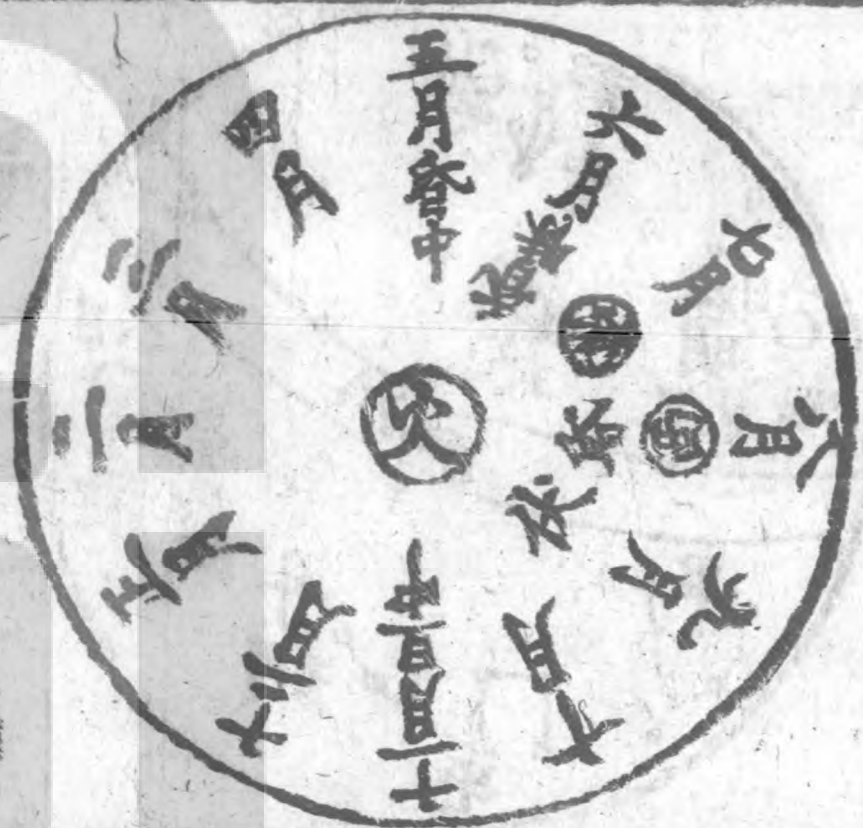 五月昏中
六月
七月
八月
九月
伏
十月
十一月旦中
十二月
正月
二月
三月
四月
火